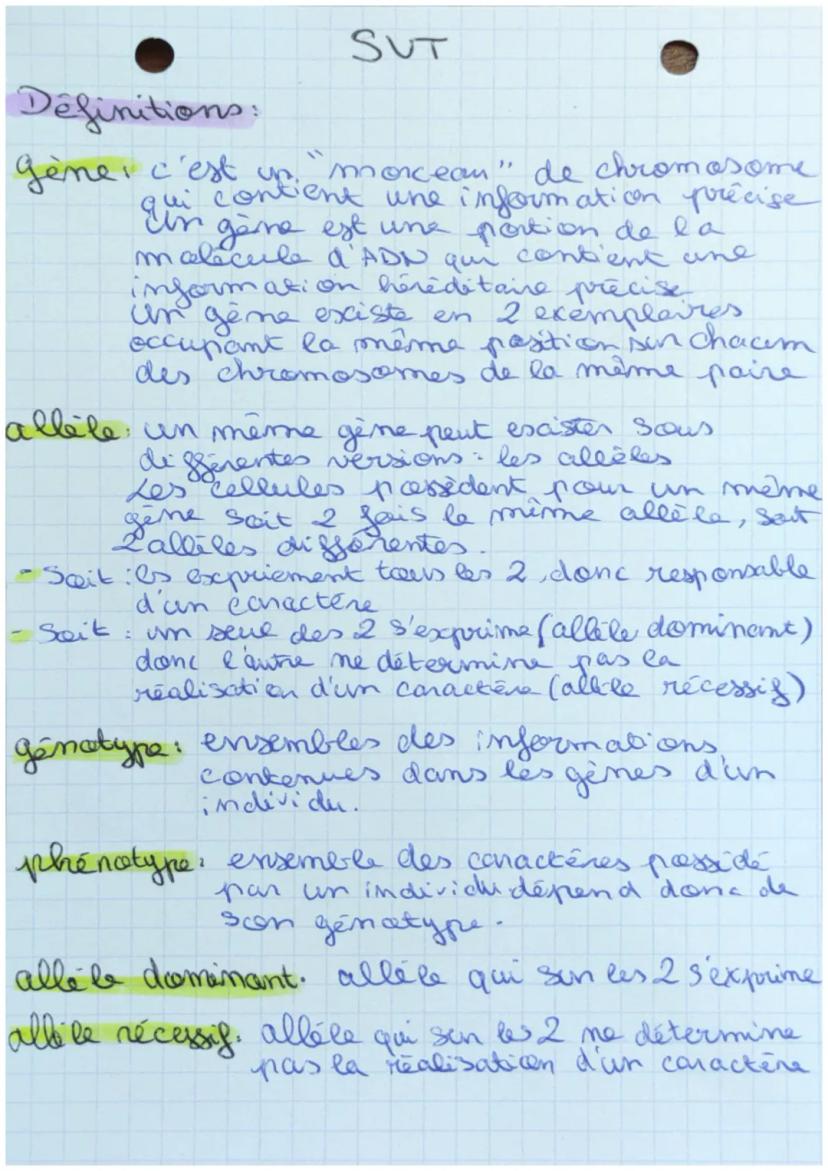 SVT
Définitions:
gène: c'est un "morceau" de chromosome
qui contient une information précise
Un gène est une portion de la
molécule d'ADN qui contient une
information héréditaire précise
Un gène existe en 2 exemplaires
occupant la même position sur chacum
des chromosomes de la même paire
allèle: un même gène peut exister sous
différentes versions: les allèles
Les cellules possèdent pour un même
gène soit 2 fois le même allèle, soit
2 allèles différentes.
- Soit: ils expriement tous les 2, donc responsable
d'un caractère
- Soit: un seul des 2 s'exprime (allèle dominant)
donc l'autre ne détermine pas la
réalisation d'un caractère (allèle récessif)
génotype: ensembles des informations
contenues dans les gènes d'un
individu.
phénotype: ensemble des caractères possédé
par un individu dépend donc de
son génotype.
allèle dominant. allèle qui sur les 2 s'exprime
allèle récessif: allèle qui sur les 2 ne détermine
pas la réalisation d'un caractère